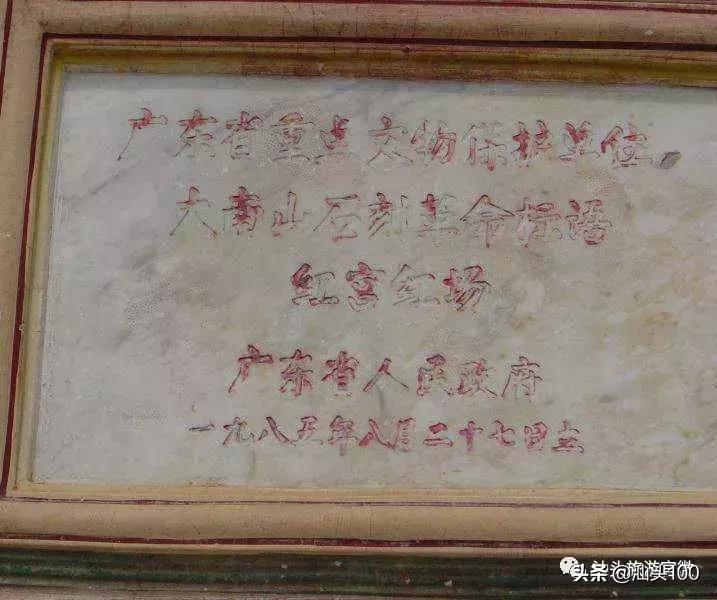 广东省重点文物保护单位。
大南山石刻革命标语
红宫红场
广东省人民政府
一九八五年八月二十七日立
头旅游官微
头条@汕头100